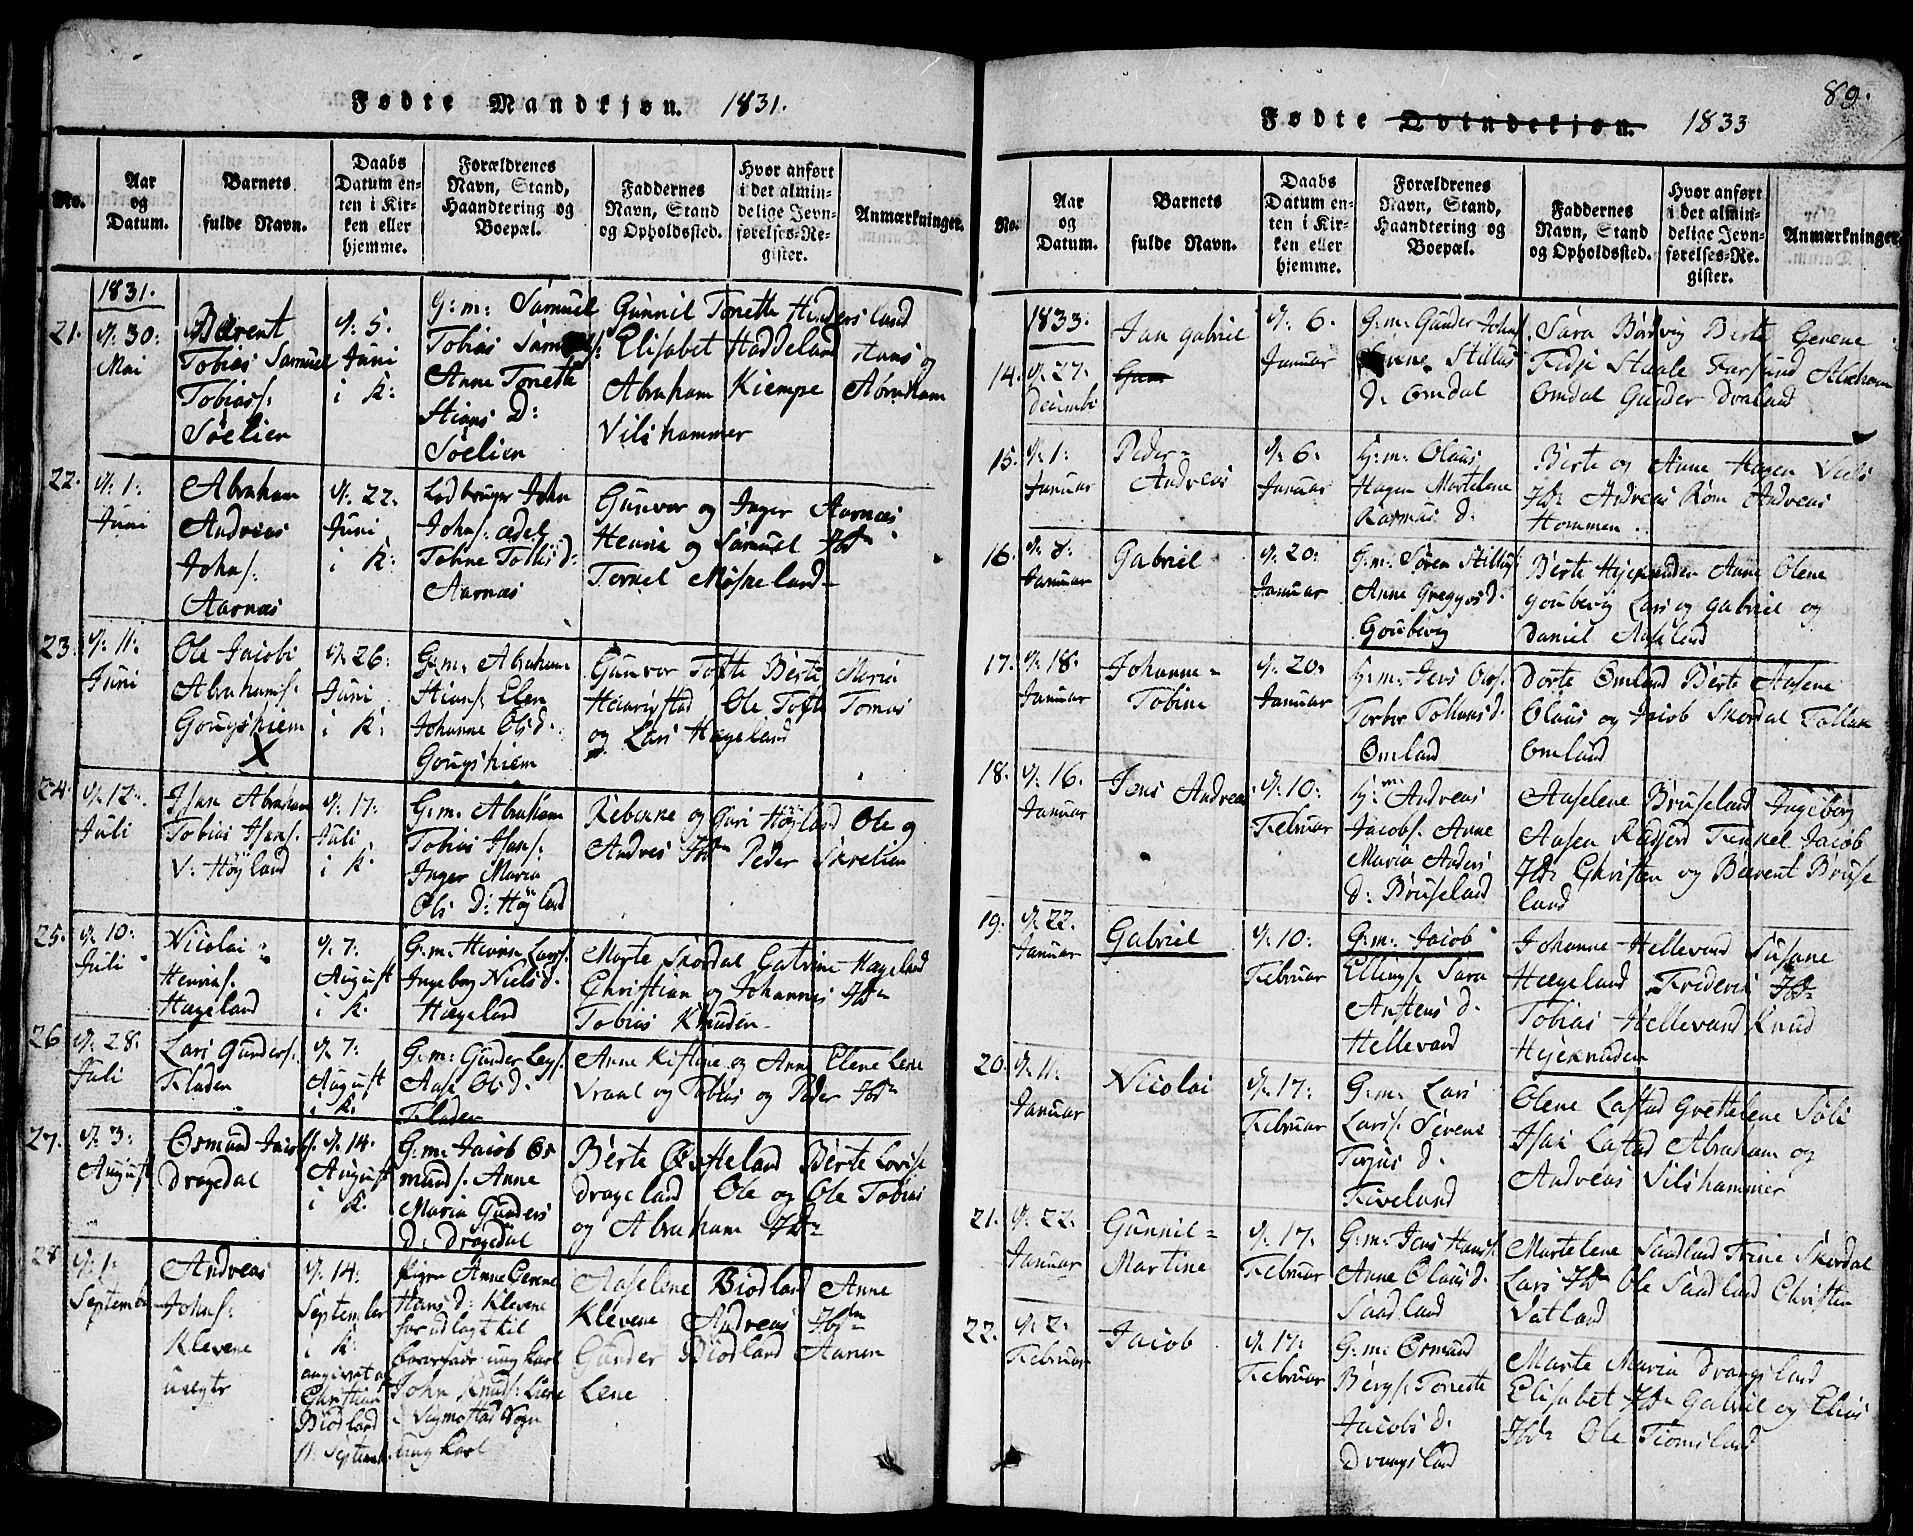 Fødte Mandkjøn. 1831.
No.
Aar
og
Datum.
Barnets
fulde Navn.
Daabs
Datum en-
ten i Kir-
ken eller
hjemme.
Forældrenes
Navn, Stand,
Haandtering og
Boepæl.
Faddernes
Navn, Stand
og Opholdssted.
Hvor anført
i det almin-
delige Jevn-
førelses-Re-
gister.
Anmærkninger.
1831.
21.
d. 30:
Mai
Bærent
Tobias Samuel
Tobias s:
Söelien
d. 5.
Juni
i K:
G: m: Samuel
Tobias
Anne Tonette
Stians D:
Söelien
Gunnil Tonette Hindersland
Elisabet Haddeland Hans og
Abraham Kiempe Abraham
Vilshammer
22.
d. 1:
Juni
Abraham
Andreas
Johns:
Aarnæs
d. 22.
Juni
i K:
John
Johns:
Tohne D:
Aarnæs
Gunvor og Inger Aarnæs
Henrie og Samuel Ibdm
Tornel
23.
d. 11:
Juni
Ole Jacobs
Abrahams:
Gougshiem
X
d. 26:
Juni
i K:
G: m: Abraham
Stians: Elen
Johanne Olsd:
Gougshiem
Gunvor Tofte Berte Maria
Ole Tofte Tomas
og Lars Hægeland
24.
d. 12.
Juli
Isak Abraham
Tobias Isaks:
V: Höyland
d. 17.
Juli
i K:
G: m: Abraham
Tobias Isaks:
Inger Maria
Ols D: Höyland
Rebenne og Guri Höyland Ole og
Andres Ibdm Peder Skrelien
25.
d. 10:
Juli
Nicolai
Henrias:
Hægeland
d. 7:
August
i K:
G: m: Henrie Larss:
Ingeborg Nielsd:
Hægeland
Marte Skordal Catrine Hægeland
Christian og Johannes Ibdm
Tobias Knuden
26
d. 28:
Juli
Lars Gunders:
Fladen
d. 7:
August
i K:
G: m: Gunder Leys:
Aase Olsd:
Fladen
Anne Kistine og Anne Elene Lene
Vraal og Tobias og Peder Ibdm
27.
d. 3:
August
Osmund Jacobs:
Dragedal
d. 14.
August
i K.
G: m: Jacob Os
munds: Anne
Maria Gunders
D: Dragedal
Berte Østteland Berte Lovise
Drageland Ole og Ole Tobias
og Abraham Ibdm
28
d. 1:
September
Andreas
Johns:
Klevene
uægte
d. 14.
September
i K:
angivet af
Christian
Biodland
11. Septemb.
Pigen Anne Gerene
Hans d: Klevene
for udlagt til
Barnefader ung karl
John Knuds: Liene
i Vigmostad Sogn
ung karl
Aaselene Biodland Anne
Klevene Andreas Ibdm
Gunder Biodland Aanen
Lene
89.
Fødte Qvindekjøn. 1833
No.
Aar
og
Datum.
Barnets
fulde Navn.
Daabs
Datum en-
ten i Kir-
ken eller
hjemme.
Forældrenes
Navn, Stand,
Haandtering og
Boepæl.
Faddernes
Navn, Stand
og Opholdssted.
Hvor anført
i det almin-
delige Jevn-
førelses-Re-
gister.
Anmærkninger
1833.
14.
d. 27.
Decemb:
Jan Gabriel
d. 6.
Januar
G: m: Gunder Johns:
Stillas
d. Omdal
Sara Berte Gerene
Staale Farsund Abraham
Omdal Gunder Draland
15.
d. 1:
Januar
Peder
Andreas
d. 6.
Januar
G: m: Olaus
Hagen Martelene
Rasmus d.
Berte og Anne Hagen
Ibdm Andreas Rom Andreas
Hommen
16.
d. 8:
Januar
Gabriel
d. 20:
Januar
G: m: Sören Stillass:
Anne Gregers d:
Goubevig
Berte Hejeknuden Anne Olene
Goubevig Lars og Gabriel og
Daniel Aaseland
17.
d. 18.
Januar
Johanne
Tobine
d. 20:
Januar
G: m: Jens Ols:
Torbor Tollans d:
Omland
Dorte Omland Berte Aasene
Olaus og Jacob Skordal Tollak
Omland
18.
d. 16.
Januar
Jens Andreas
d. 10:
Februar
G: m: Andreas
Jacobs: Anne
Maria Anders
d: Bruseland
Aaselene Bruseland Ingeborg
Aasen Rædsfjord Tenkel Jacob
Ibdm Christen og Berent Bruse
land
19.
d. 22.
Januar
Gabriel
d. 10:
Februar
G: m: Jacob
Ellings: Sara
Austens d.
Hellevand
Johanne Hellevand Susane
Hægeland Frideric Ibdm
Tobias Hellevand Knud
Hejeknuden
20.
d. 11.
Januar
Nicolai
d. 17:
Februar
G: m: Lars
Lars s: Sirene
Terjus d.
Fiveland
Olene Lastad Grettelene Söli
Isak Lastad Abraham og
Andreas Vilshammer
21.
d. 22.
Januar
Gunnil
Martine
d. 17:
Februar
G: m: Jens Hans s:
Anne Olaus d.
Saadland
Martelene Saadland Trine Skordal
Lars Ibdm Ole Saadland Christen
Vatland
22.
d. 2:
Februar
Jacob
d. 17:
Februar
G: m: Osmund
Bergs: Tonnette
Jacobs d.
Drangsland
Marte Maria Drangsland
Elisabet Ibdm Gabriel og Elias
Ibdm Ole Tiomsland